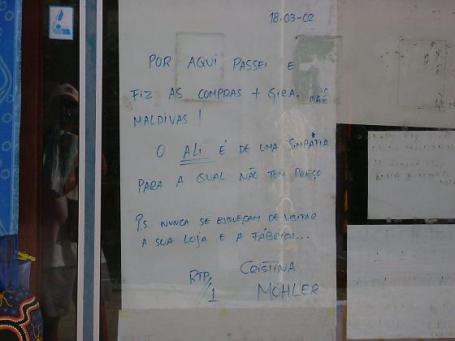 18-03-02
POR AQUI PASSEI E
FIZ AS COMPRAS + GIRAS DAS
MALDIVAS!
O ALI É DE UMA SIMPATIA
PARA A QUAL NÃO TEM PREÇO
Ps. NUNCA SE ESQUEÇAM DE VISITAR
A SUA LOJA E A FÁBRICA...
CRISTINA
MÖHLER
RTP/1